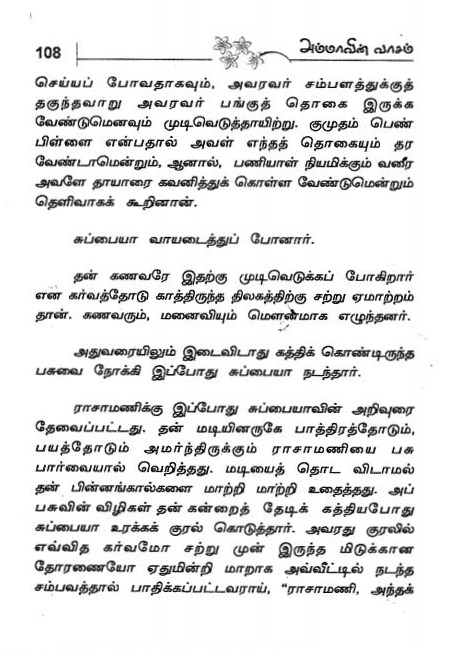 108
அம்மாவின் வாசம்
செய்யப் போவதாகவும், அவரவர் சம்பளத்துக்குத்
தகுந்தவாறு அவரவர் பங்குத் தொகை இருக்க
வேண்டுமெனவும் முடிவெடுத்தாயிற்று. குமுதம் பெண்
பிள்ளை என்பதால் அவள் எந்தத் தொகையும் தர
வேண்டாமென்றும், ஆனால், பணியாள் நியமிக்கும் வரை
அவளே தாயாரை கவனித்துக் கொள்ள வேண்டுமென்றும்
தெளிவாகக் கூறினான்.
சுப்பையா வாயடைத்துப் போனார்.
தன் கணவரே இதற்கு முடிவெடுக்கப் போகிறார்
என கர்வத்தோடு காத்திருந்த திலகத்திற்கு சற்று ஏமாற்றம்
தான். கணவரும், மனைவியும் மௌனமாக எழுந்தனர்.
அதுவரையிலும் இடைவிடாது கத்திக் கொண்டிருந்த
பசுவை நோக்கி இப்போது சுப்பையா நடந்தார்.
ராசாமணிக்கு இப்போது சுப்பையாவின் அறிவுரை
தேவைப்பட்டது. தன் மடியினருகே பாத்திரத்தோடும்,
பயத்தோடும் அமர்ந்திருக்கும் ராசாமணியை பசு
பார்வையால் வெறித்தது. மடியைத் தொட விடாமல்
தன் பின்னங்கால்களை மாற்றி மாற்றி உதைத்தது. அப்
பசுவின் விழிகள் தன் கன்றைத் தேடிக் கத்தியபோது
சுப்பையா உரக்கக் குரல் கொடுத்தார். அவரது குரலில்
எவ்வித கர்வமோ சற்று முன் இருந்த மிடுக்கான
தோரணையோ ஏதுமின்றி மாறாக அவ்வீட்டில் நடந்த
சம்பவத்தால் பாதிக்கப்பட்டவராய், “ராசாமணி, அந்தக்